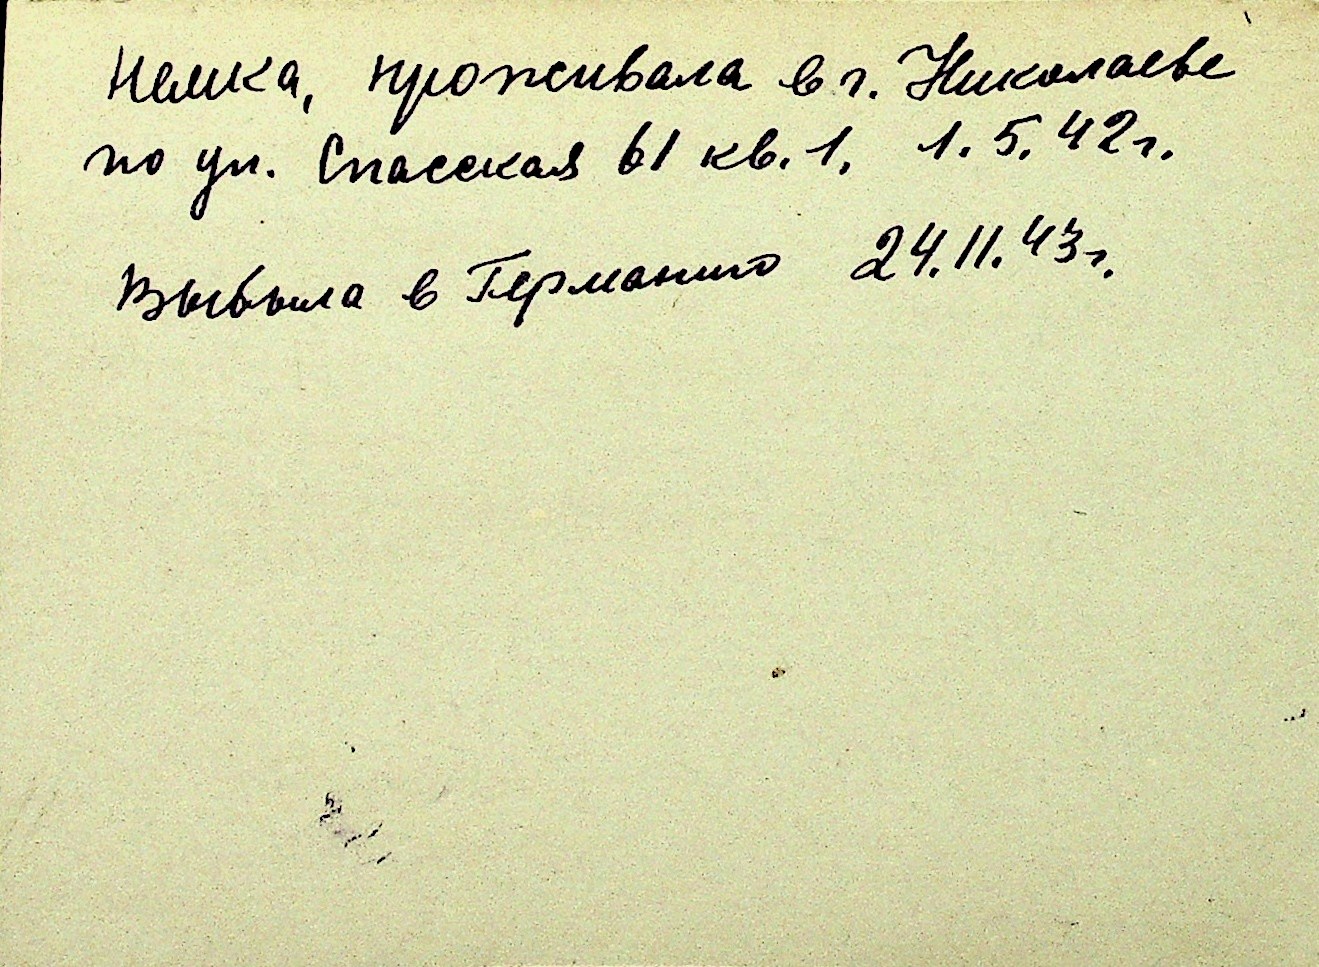 Немка, проживала в г. Николаеве
по ул. Спасская 61 кв. 1. 1.5.42г.
Выбыла в Германию 24.11.43г.